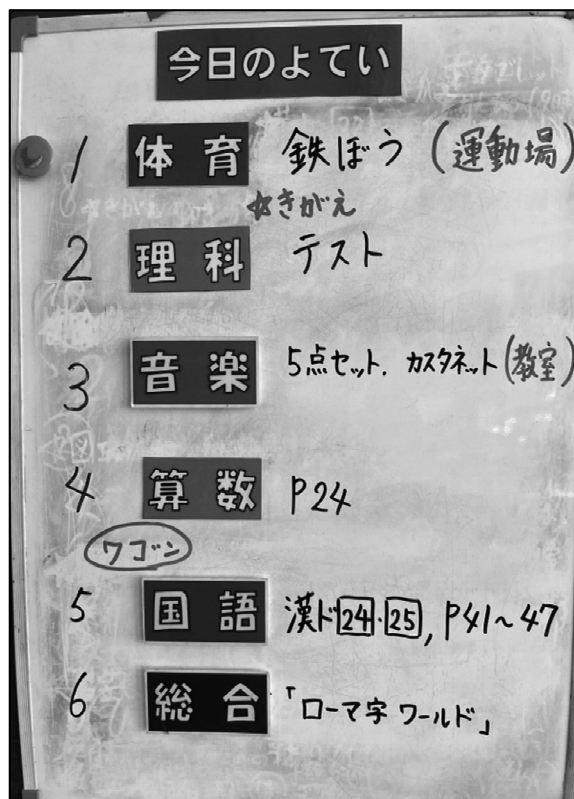 今日のよてい
1 体育 鉄ぼう(運動場)
☆きがえ
2 理科 テスト
3 音楽 5点セット. カスタネット(教室)
4 算数 P24
ワゴン
5 国語 漢ド24・25, P41~47
6 総合 「ローマ字 ワールド」